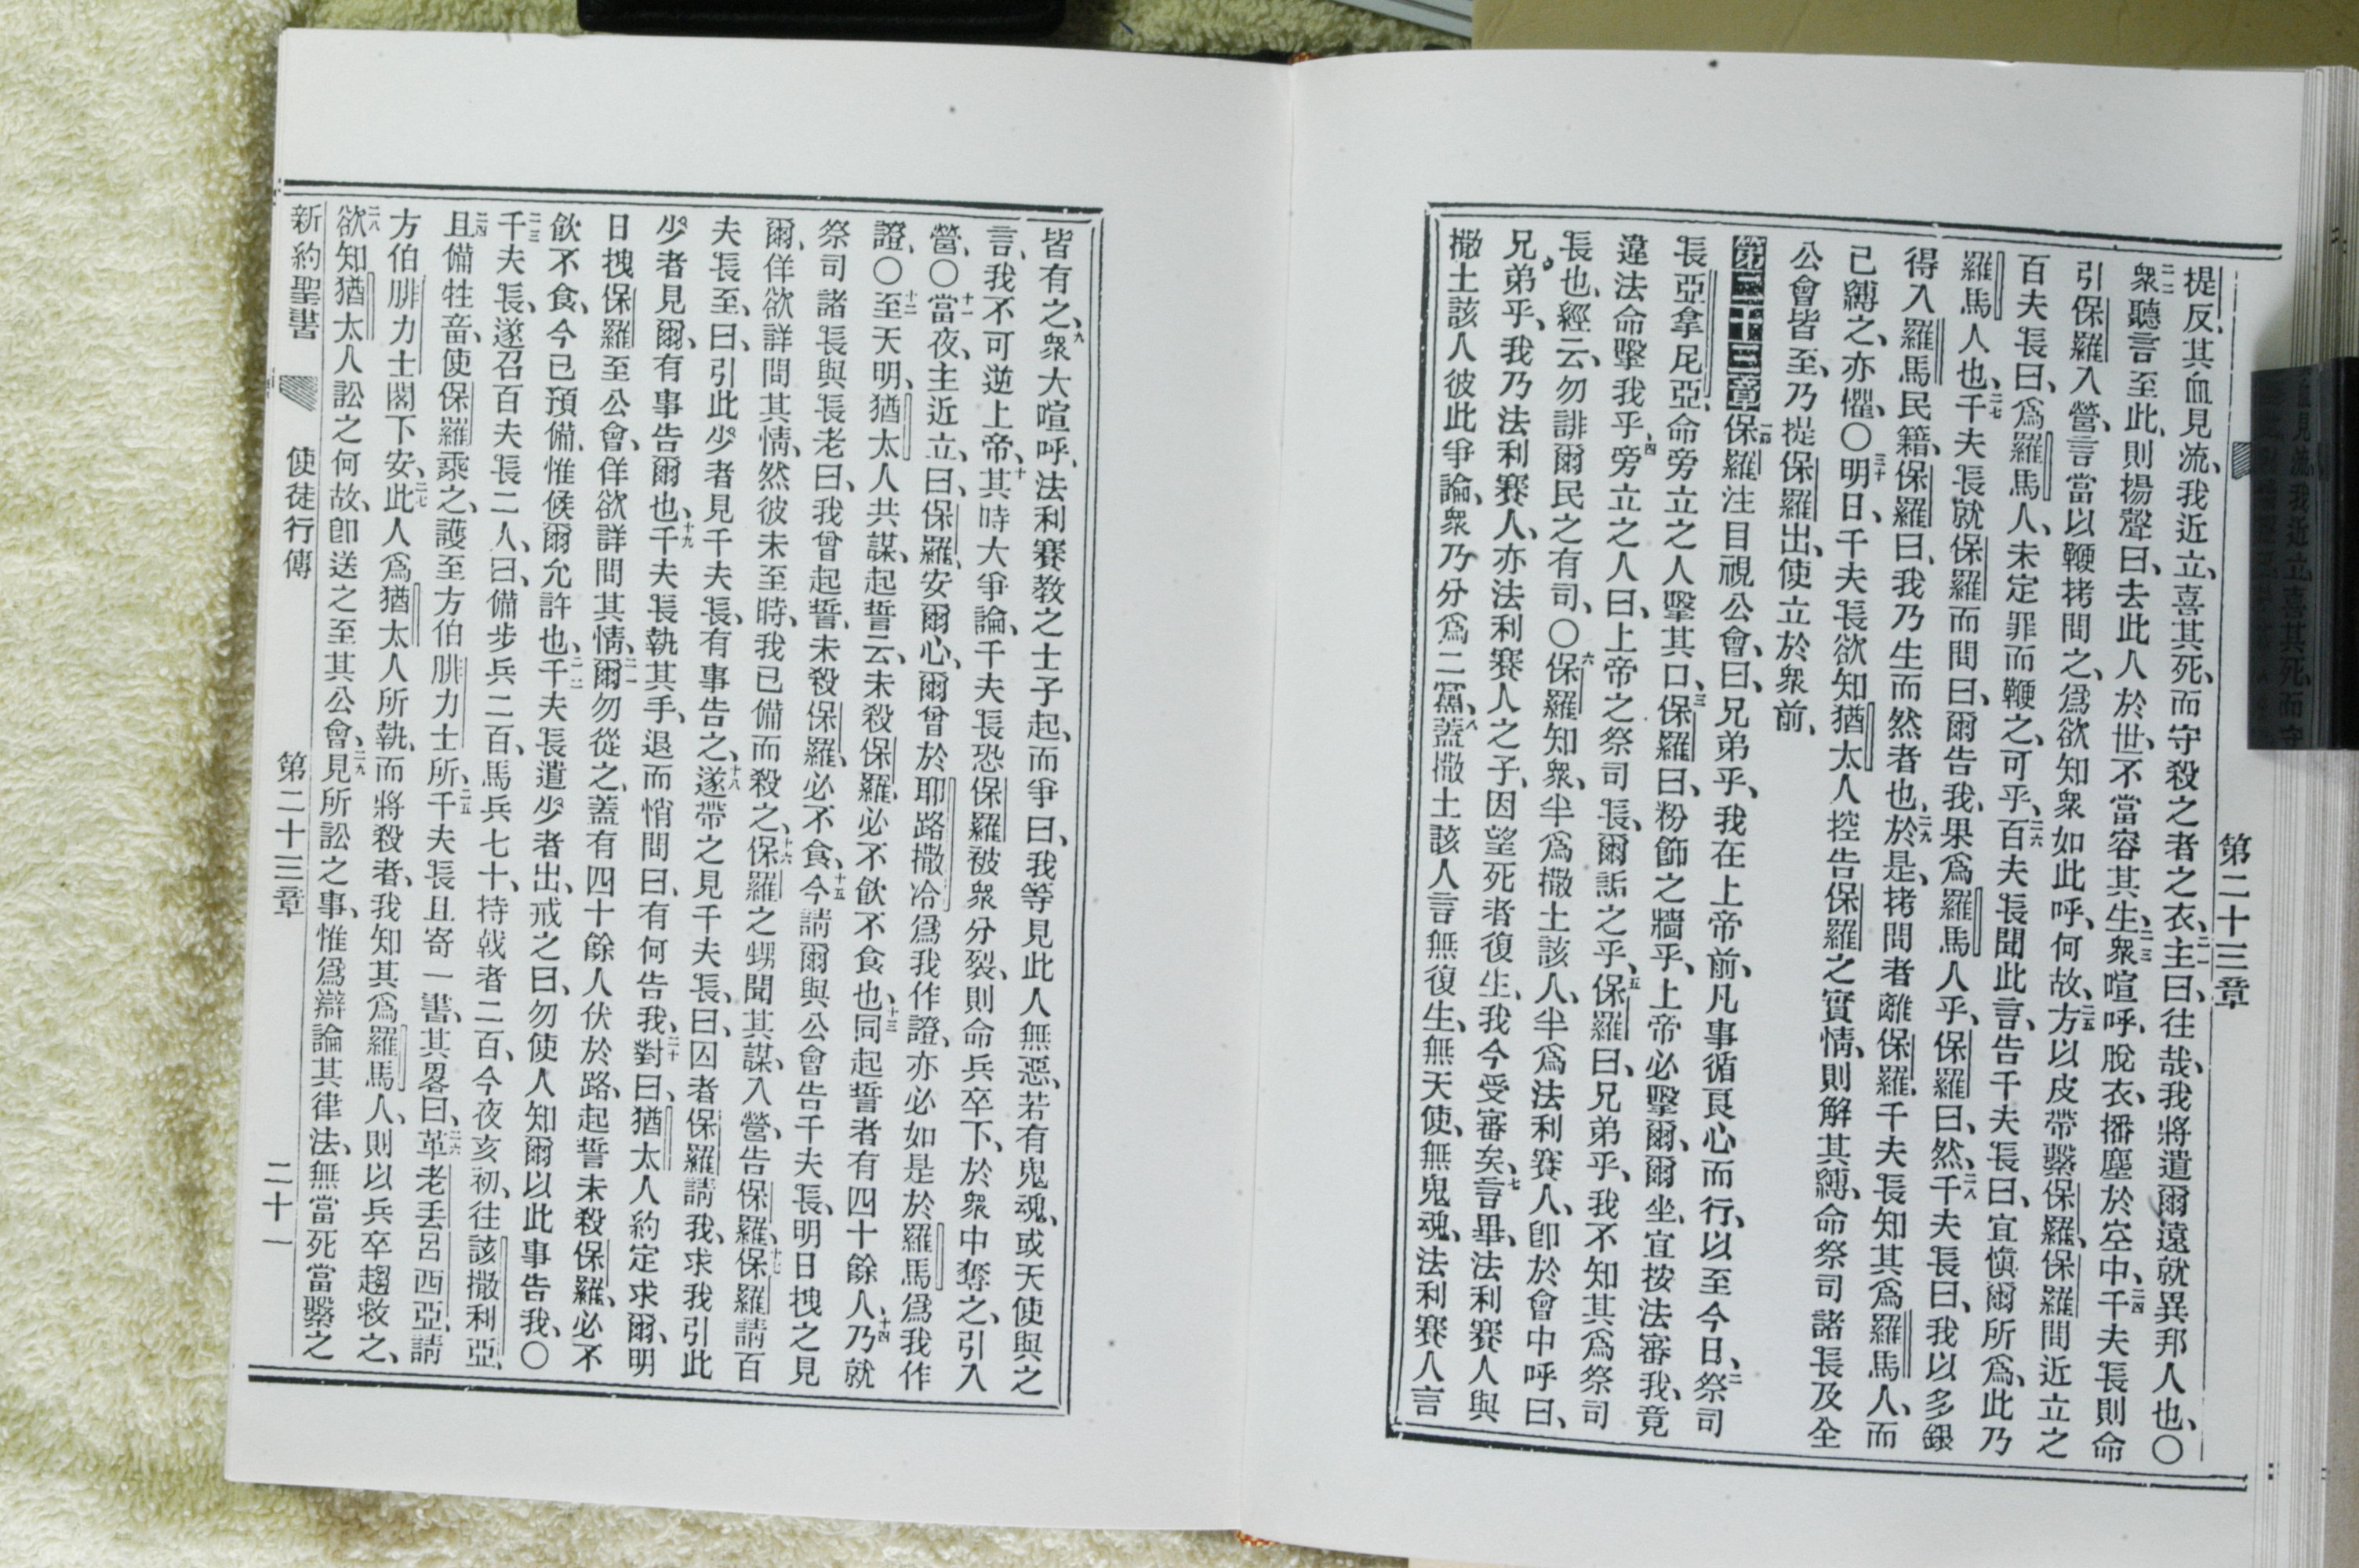 第二十三章
提反、其血見流、我近立、喜其死、而守殺之者之衣、二一主曰、往哉、我將遣爾遠就異邦人也、〇
二二衆聽言至此、則揚聲曰、去此人於世、不當容其生、二三衆喧呼、脫衣、播塵於空中、二四千夫長則命
引保羅入營、言當以鞭拷問之、爲欲知衆如此呼、何故、二五方以皮帶繫保羅、保羅問近立之
百夫長曰、爲羅馬人、未定罪而鞭之、可乎、二六百夫長聞此言、告千夫長曰、宜愼爾所爲、此乃
羅馬人也、二七千夫長就保羅而問曰、爾告我、果爲羅馬人乎、保羅曰、然、二八千夫長曰、我以多銀
得入羅馬民籍、保羅曰、我乃生而然者也、二九於是、拷問者離保羅、千夫長知其爲羅馬人、而
已縛之、亦懼、〇三十明日、千夫長欲知猶太人控告保羅之實情、則解其縛、命祭司諸長及全
公會皆至、乃提保羅出、使立於衆前、
第二十三章 一保羅注目視公會、曰、兄弟乎、我在上帝前、凡事循良心而行、以至今日、二祭司
長亞拿尼亞、命旁立之人擊其口、三保羅曰、粉飾之牆乎、上帝必擊爾、爾坐、宜按法審我、竟
違法命擊我乎、四旁立之人曰、上帝之祭司長、爾詬之乎、五保羅曰、兄弟乎、我不知其爲祭司
長也、經云、勿誹爾民之有司、〇六保羅知衆、半爲撒土該人、半爲法利賽人、卽於會中呼曰、
兄弟乎、我乃法利賽人、亦法利賽人之子、因望死者復生、我今受審矣、七言畢、法利賽人與
撒土該人彼此爭論、衆乃分爲二黨、八蓋撒土該人言無復生、無天使、無鬼魂、法利賽人言
皆有之、九衆大喧呼、法利賽教之士子起、而爭曰、我等見此人無惡、若有鬼魂、或天使與之
言、我不可逆上帝、十其時大爭論、千夫長恐保羅被衆分裂、則命兵卒下、於衆中奪之、引入
營、〇十一當夜、主近立、曰、保羅、安爾心、爾曾於耶路撒冷爲我作證、亦必如是於羅馬爲我作
證、〇十二至天明、猶太人共謀、起誓云、未殺保羅、必不飲不食也、十三同起誓者有四十餘人、十四乃就
祭司諸長與長老曰、我曾起誓、未殺保羅、必不食、十五今請爾與公會告千夫長、明日拽之見
爾、佯欲詳問其情、然彼未至時、我已備而殺之、十六保羅之甥聞其謀、入營、告保羅、十七保羅請百
夫長至、曰、引此少者見千夫長、有事告之、十八遂帶之見千夫長、曰、囚者保羅請我、求我引此
少者見爾、有事告爾也、十九千夫長執其手、退而悄問曰、有何告我、二十對曰、猶太人約定求爾、明
日拽保羅至公會、佯欲詳問其情、二一爾勿從之、蓋有四十餘人伏於路、起誓未殺保羅、必不
飲不食、今已預備、惟候爾允許也、二二千夫長遣少者出、戒之曰、勿使人知爾以此事告我、〇
二三千夫長、遂召百夫長二人、曰、備步兵二百、馬兵七十、持戟者二百、今夜亥初、往該撒利亞、
二四且備牲畜、使保羅乘之、護至方伯腓力士所、二五千夫長且寄一書、其畧曰、二六革老丟呂西亞、請
方伯腓力士閣下安、二七此人爲猶太人所執、而將殺者、我知其爲羅馬人、則以兵卒趨救之、
二八欲知猶太人訟之何故、卽送之至其公會、二九見所訟之事、惟爲辯論其律法、無當死當繫之
新約聖書 使徒行傳 第二十三章 二十一